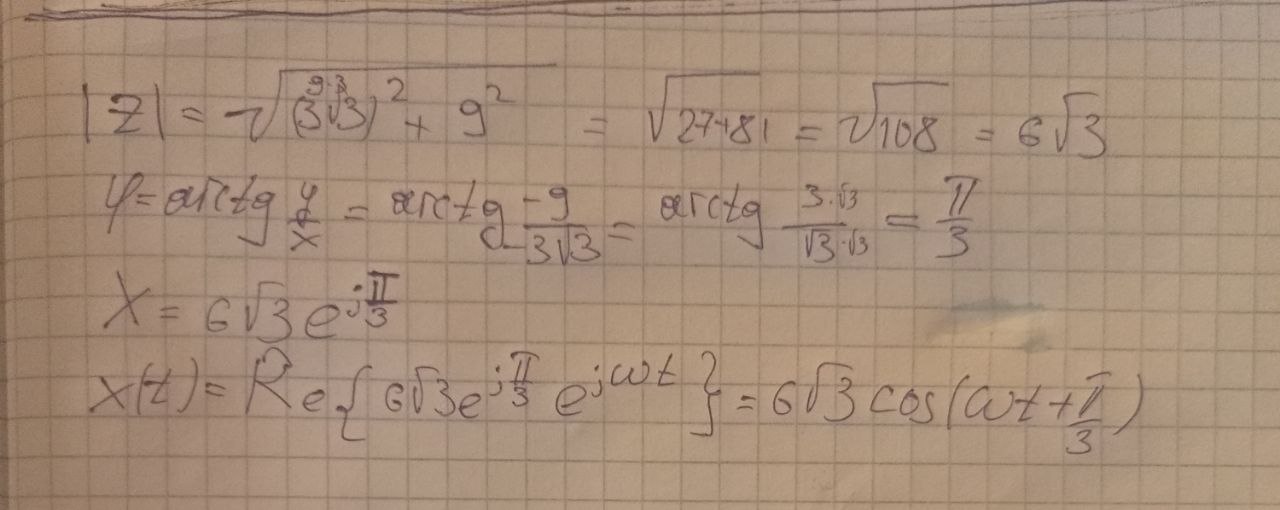 |Z| = √((3√3)² + 9²) 9·3 = √(27+81) = √108 = 6√3
φ = arctg y/x = arctg -9/-3√3 = arctg 3·√3/√3·√3 = π/3
X = 6√3 e^(jπ/3)
x(t) = Re{6√3e^(jπ/3) e^(jωt)} = 6√3 cos(ωt + π/3)